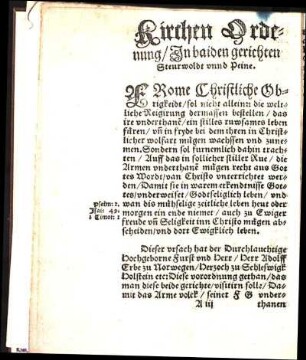 Kirchen Orde-
nung/ In baiden gerichten
Steurwoldt vnnd Peine.
FRome Christliche Ob-
rigkeidt/ sol nicht alleinn die welt-
liche Regirung dermassen bestellen/ das
ire vnderthane/ ein stilles ruwsames leben
füren/ vn̄ in fryde bey dem ihren in Christli-
cher wolfart mügen wachssen vnd zune-
men, Sondern sol furnemlich dohin trach-
ten/ Auff das in sollicher stiller Rue/ die
Armen vnderthanē mügen recht aus Got-
tes Wordt/ van Christo vnterrichtet wer-
den/ Damit sie in warem erkendtnisse Got-
tes/ vnderweiset/ Gotdtseliglich leben/ vnd-
wan dis mühselige zeitliche leben heut oder
morgen ein ende niemet/ auch zu Ewiger
freude vn̄ Seligkeit inn Christo mügen ab-
scheiden/ vnd dort Ewigklich leben.
psalm: 2.
Isaie 49.
1. Timot: 2
Dieser vrsach hat der Durchlauchtige
Hochgeborne Furst vnd Herr/ Herr Adolff
Erbe zu Norwegen/ Hertzoch zu Schleswigk
Holstein etc: Diese vorordnung gethan/ das
man diese beide gerichte/ visitirn solle/ Da-
mit das Arme volck/ seiner F G vnder-
A iij
thanen